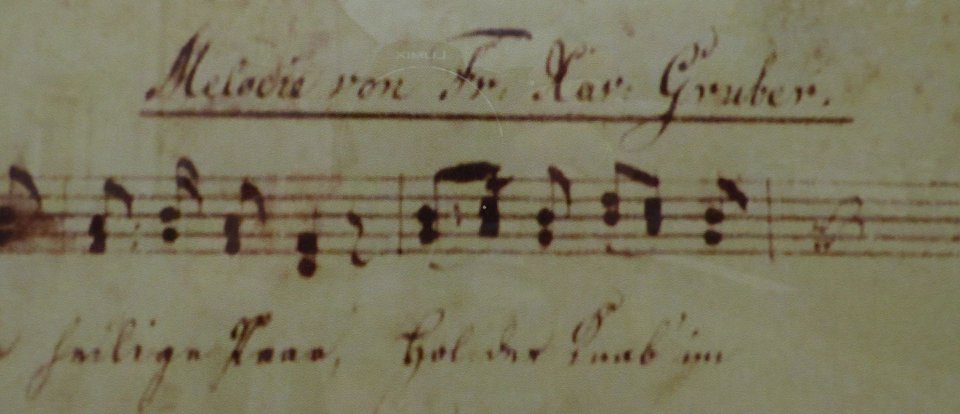 Melodie von Fr. Xav. Gruber.
heilige Paar, Hol der Knab' im